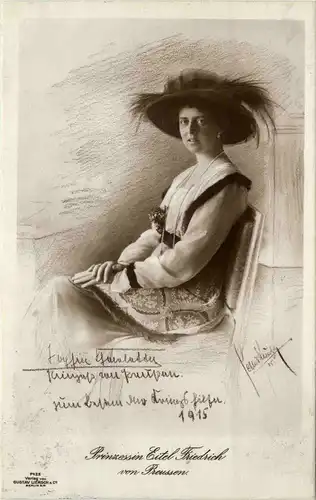 Sophie Charlotte
Prinzess von Preußen.
zum Besten der Kriegshilfe.
1915
Prinzessin Eitel Friedrich
von Preussen.
7122
Verlag von
GUSTAV LIERSCH & Co
BERLIN S.W.